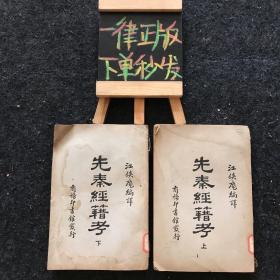 一律正版
下单秒发
江俠庵編譯
先秦經籍考
上
商務印書館發行
江俠庵編譯
先秦經籍考
下
商務印書館發行